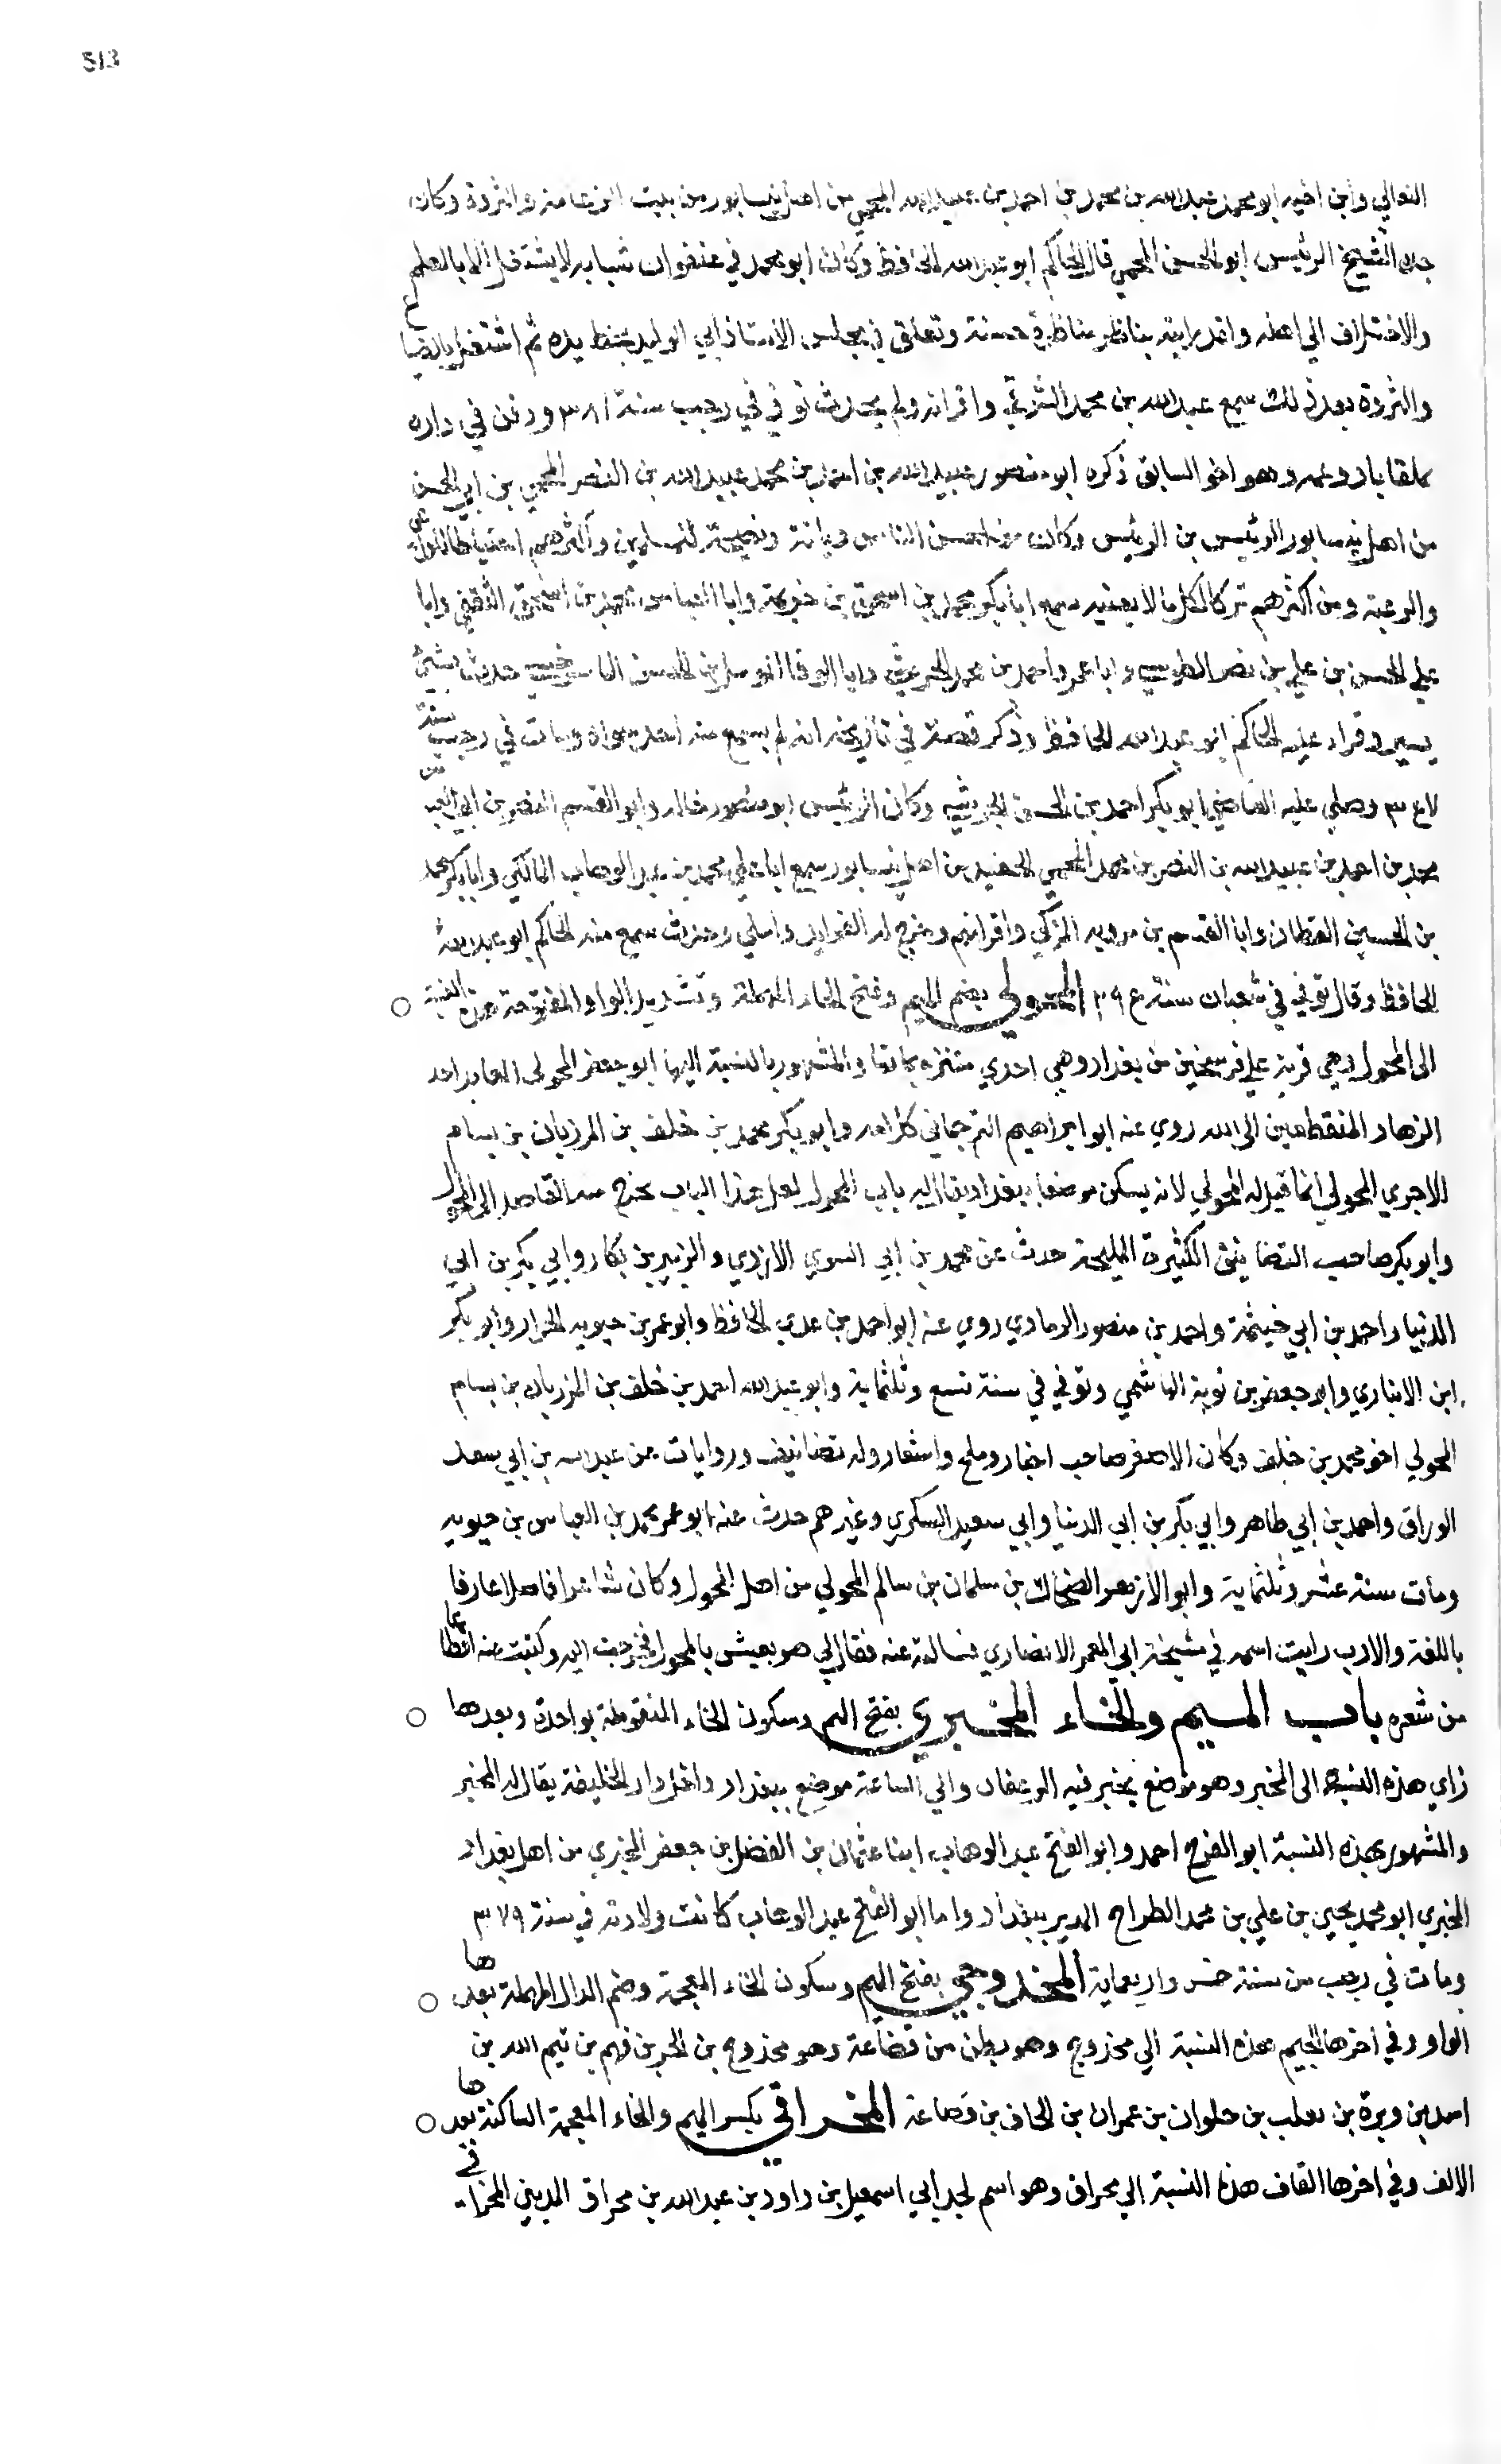 513
التوالي وابن اخيه ابو محمد عبدالله بن محمد بن احمد بن عبيدالله المحمي من اهل نيسابور من بيت الزعامة والثروة وكان
جده الشيخ الرئيس ابو الحسن المحمي قال الحاكم ابو عبدالله الحافظ وكان ابو محمد في عنفوان شبابه لا يشتغل الا بالعلم
والاختلاف الي اهله ولقد رايته يناظر مناظرة حسنة وتعلق في مجلس الاستاذ ابي الوليد بخط يده ثم اشتغل بالضياع
والثروة بعد ذلك سمع عبدالله بن محمد الشرقي واقرانه ولم يحدث توفي في رجب سنة ٣٨١ ودفن في داره
بملقاباد وعمه وهو اخو السابق ذكره ابو منصور عبيدالله بن احمد بن محمد عبيدالله بن النصر المحمي بن ابي الحسن
من اهل نيسابور الرئيس بن الرئيس وكان من احسن الناس ديانة ونصيحة للمسلمين واكثرهم احتياطا للولي
والرعية ومن اكثرهم تركا لكل ما لا يعنيه سمع ابا بكر محمد بن اسحق بن خزيمة وابا العباس محمد بن اسحق الثقفي وابا
علي الحسن بن علي بن نصر الطوسي وابا عمرو احمد بن محمد الجرشي وابا الوفا المومل بن الحسن الماسرجسي حدث بشئ
يسير وقراء عليه الحاكم ابو عبدالله الحافظ وذكر قصته في تاريخه انه لم يسمع منه احد سواه ومات في رجب سنة
٣٤٧ وصلي عليه القاضي ابو بكر احمد بن الحسن الجرشي وكان الرئيس ابو منصور خاله وابو القسم النضر بن ابي الحسن
محمد بن احمد بن عبيدالله بن النصر بن محمد المحمي الحفيد من اهل نيسابور سمع ابا علي محمد بن عبد الوهاب المالكي وابا بكر محمد
بن الحسين القطان وابا القسم بن مرويه المزكي واقرانهم وخرج له الفوايد واملي وحدث سمع منه الحاكم ابو عبدالله
الحافظ وقال توفي في شعبان سنة ٣٩٤ المحولي بضم الميم وفتح الحاء المهملة وتشديد الواو المفتوحة هذه النسبة
الى المحول وهي قرية علي فرسخين من بغداد وهي احدي متنزهاتها والمشهور بالنسبة اليها ابو جعفر المحولى العابد احد
الزهاد المنقطعين الى الله روي عنه ابو ابراهيم الترجماني كلامه وابو بكر محمد بن خلف بن المرزبان بن بسام
الاجري المحولي انما قيل له المحولي لانه يسكن موضعا ببغداد يقال له باب المحول لعل هذا الباب يخرج منه القاصد الى المحول
وابو بكر صاحب التصانيف الكثيرة المليحة حدث عن محمد بن ابي السري الازدي والزبير بن بكار وابي بكر بن ابي
الدنيا واحمد بن ابي خيثمة واحمد بن منصور الرمادي روي عنه ابو احمد بن عدي الحافظ وابو عمر بن حيويه الخزاز وابو بكر
ابن الانباري وابو جعفر بن توبة الهاشمي وتوفي في سنة تسع وثلثماية وابو عبدالله احمد بن خلف بن المرزبان بن بسام
المحولي اخو محمد بن خلف وكان الاصغر صاحب اخبار وملح واشعار وله تصانيف وروايات عن عبدالله بن ابي سعد
الوراق واحمد بن ابي طاهر وابي بكر بن ابي الدنيا وابي سعيد السكري وغيرهم حدث عنه ابو عمر محمد بن العباس بن حيويه
ومات سنة عشر وثلثماية وابو الازهر الضحاك بن سلمان بن سالم المحولي من اهل المحول وكان شاعرا فاضلا عارفا
باللغة والادب رايت اسمه في مشيخة ابي المعمر الانصاري فسالته عنه فقال لي هو يعيش بالمحول فخرجت اليه وكتبت عنه اقطاعا
من شعره باب الميم والخاء المخبزي بفتح الميم وسكون الخاء المنقوطة بواحدة وبعدها
زاي هذه النسبة الى المخبز وهو موضع يخبز فيه الرغفان والي الساعة موضع ببغداد داخل دار الخليفة يقال له المخبز
والمشهور بهذه النسبة ابو الفرج احمد وابو الفتح عبد الوهاب ابنا عثمان بن الفضل بن جعفر المخبزي من اهل بغداد
المخبزي ابو محمد يحيى بن علي بن محمد الطراح المدير ببغداد واما ابو الفتح عبد الوهاب كانت ولادته في سنة ٣٧٩
ومات في رجب من سنة خمس واربعماية المخدوجي بفتح الميم وسكون الخاء المعجمة وضم الدال المهملة بعدها
الواو وفي اخرها الجيم هذه النسبة الي مخدوج وهو بطن من قضاعة وهو مخدوج بن الحر بن فهم بن تيم الله بن
اسد بن وبرة بن تغلب بن حلوان بن عمران بن الحاف بن قضاعة المخراقي بكسر الميم والخاء المعجمة الساكنة بعدها
الالف وفي اخرها القاف هذه النسبة الي مخراق وهو اسم لجد ابي اسمعيل بن داود بن عبدالله بن مخراق المديني المخراقي